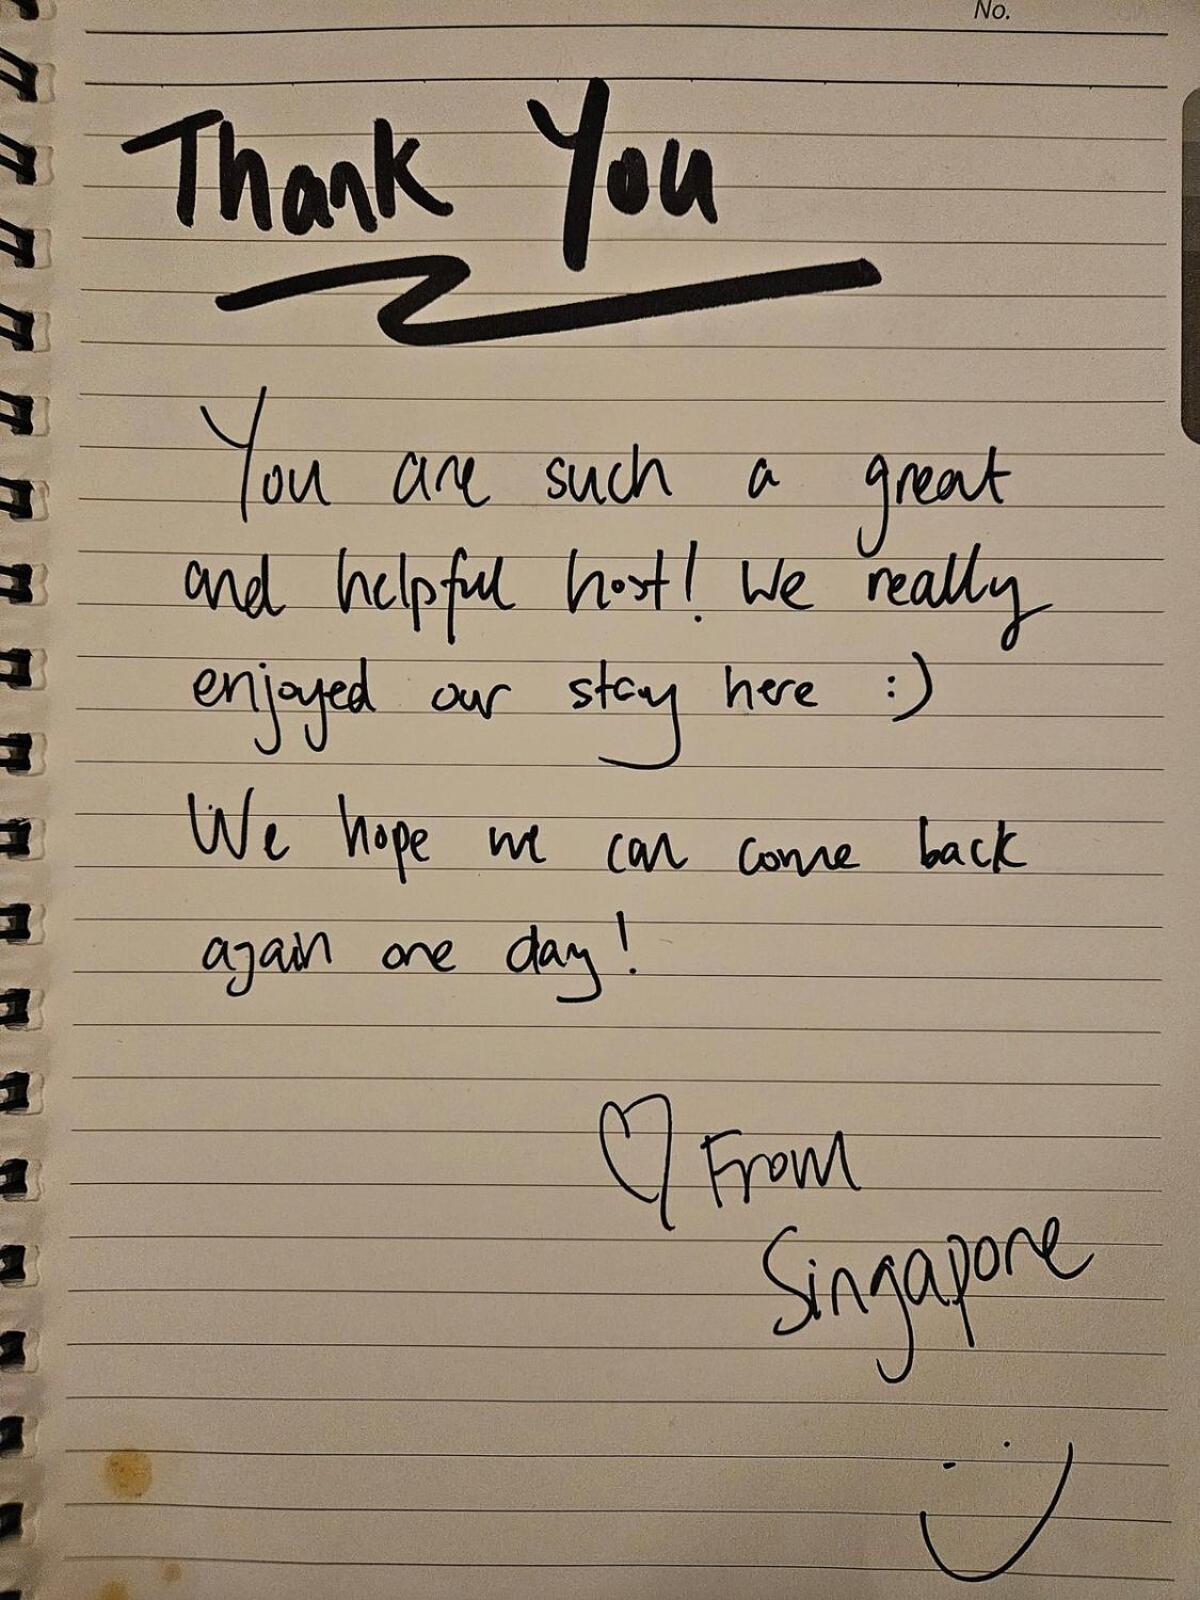 No.
Thank You
You are such a great
and helpful host! We really
enjoyed our stay here :)
We hope we can come back
again one day!
♡ From
Singapore